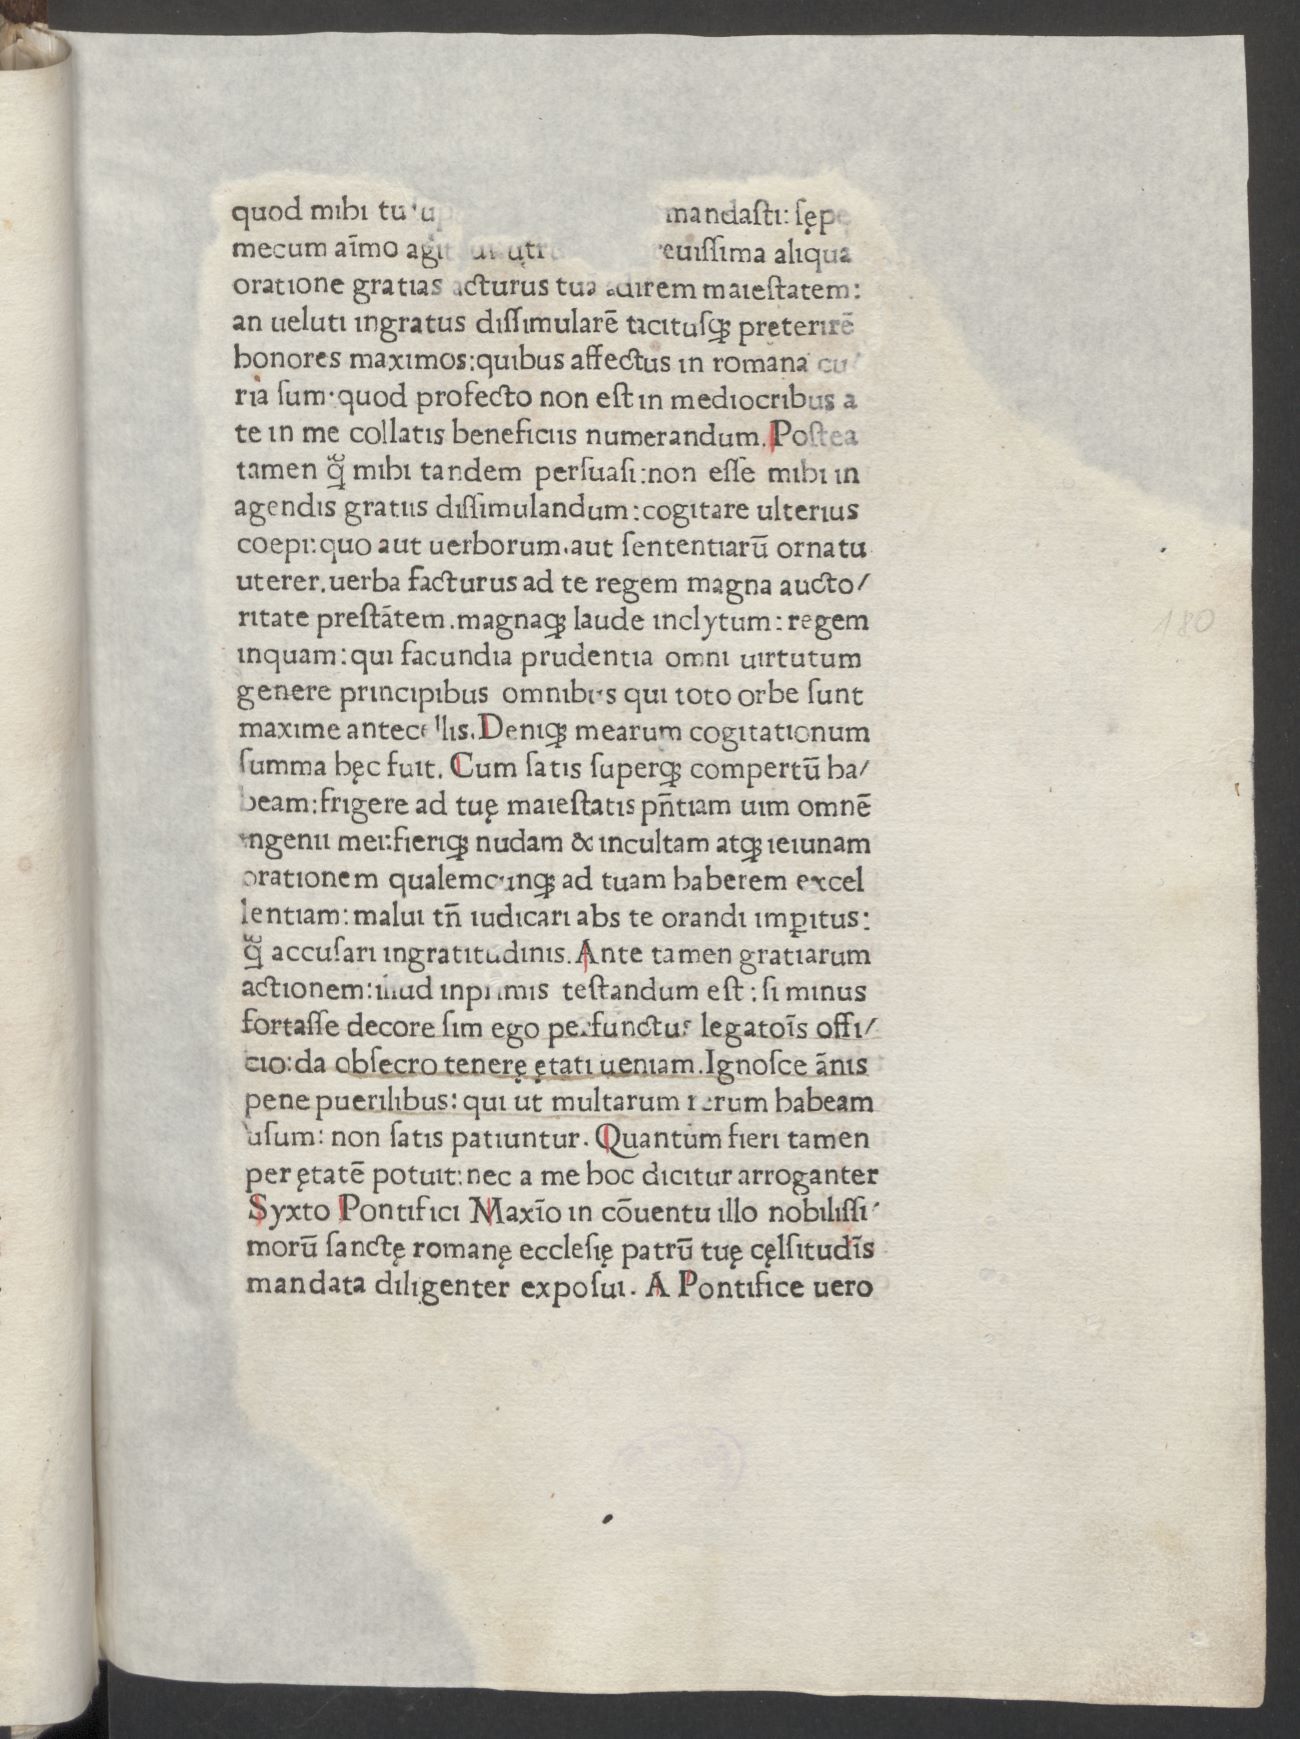 quod mihi tu mandasti: sępe
mecum aı̄mo euissima aliqua
oratione gratias acturus tuā adirem maiestatem:
an ueluti ingratus dissimularē tacitusꝗ preterirē
honores maximos: quibus affectus in romana cu/
ria sum· quod profecto non est in mediocribus a
te in me collatis beneficiis numerandum. Postea
tamen ꝙ̃ mihi tandem persuasi: non esse mihi in
agendis gratiis dissimulandum: cogitare ulterius
coepi: quo aut uerborum. aut sententiarū ornatu
uterer. uerba facturus ad te regem magna aucto/
ritate prestātem. magnaꝗ laude inclytum: regem
inquam: qui facundia prudentia omni uirtutum
genere principibus omnibus qui toto orbe sunt
maxime antecellis. Deniꝗ mearum cogitationum
summa hęc fuit. Cum satis superꝗ compertū ha/
beam: frigere ad tuę maiestatis pn̄tiam uim omnē
ingenii mei: fieriꝗ nudam & incultam atꝗ ieiunam
orationem qualemcunꝗ ad tuam haberem excel
lentiam: malui tn̄ iudicari abs te orandi imꝑitus:
ꝙ̃ accusari ingratitudinis. Ante tamen gratiarum
actionem: illud inprimis testandum est: si minus
fortasse decore sim ego perfunctus legatoı̄s offi/
cio: da obsecro tenerę ętati ueniam. Ignosce ānis
pene puerilibus: qui ut multarum rerum habeam
usum: non satis patiuntur. Quantum fieri tamen
per ętatē potuit: nec a me hoc dicitur arroganter
Syxto Pontifici Maxīo in cōuentu illo nobilissi/
morū sanctę romanę ecclesię patrū tuę cęlsitudı̄s
mandata diligenter exposui. A Pontifice uero
180